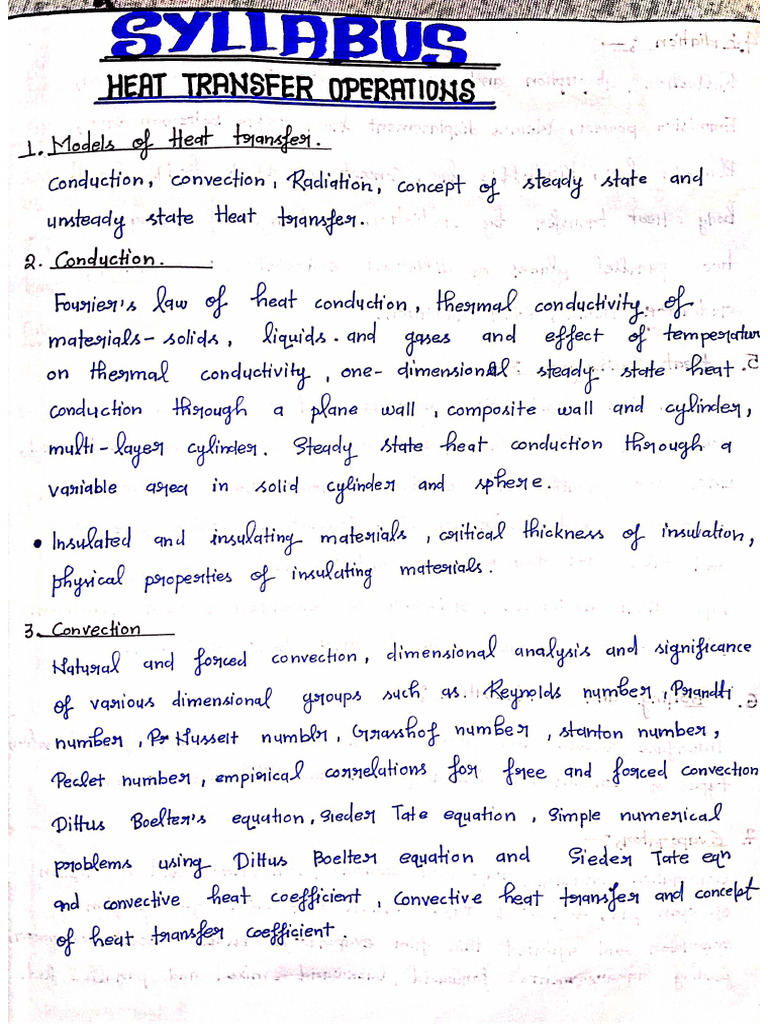 SYLLABUS
HEAT TRANSFER OPERATIONS
1. Models of Heat transfer.
Conduction, convection, Radiation, concept of steady state and
unsteady state Heat transfer.
2. Conduction.
Fourier's law of heat conduction, thermal conductivity of
materials - solids, liquids. and gases and effect of temperatur
on thermal conductivity, one-dimensional steady state heat
conduction through a plane wall, composite wall and cylinder,
multi-layer cylinder. Steady state heat conduction through a
variable area in solid cylinder and sphere.
• Insulated and insulating materials, critical thickness of insulation,
physical properties of insulating materials.
3. Convection
Natural and forced convection, dimensional analysis and significance
of various dimensional groups such as Reynolds number, Prandtl
number, Nusselt number, Grasshof number, stanton number,
Peclet number, empirical correlations for free and forced convection
Dittus Boelter's equation, Sieder Tate equation, Simple numerical
problems using Dittus Boelter equation and Sieder Tate eqn
and convective heat coefficient, Convective heat transfer and concept
of heat transfer coefficient.